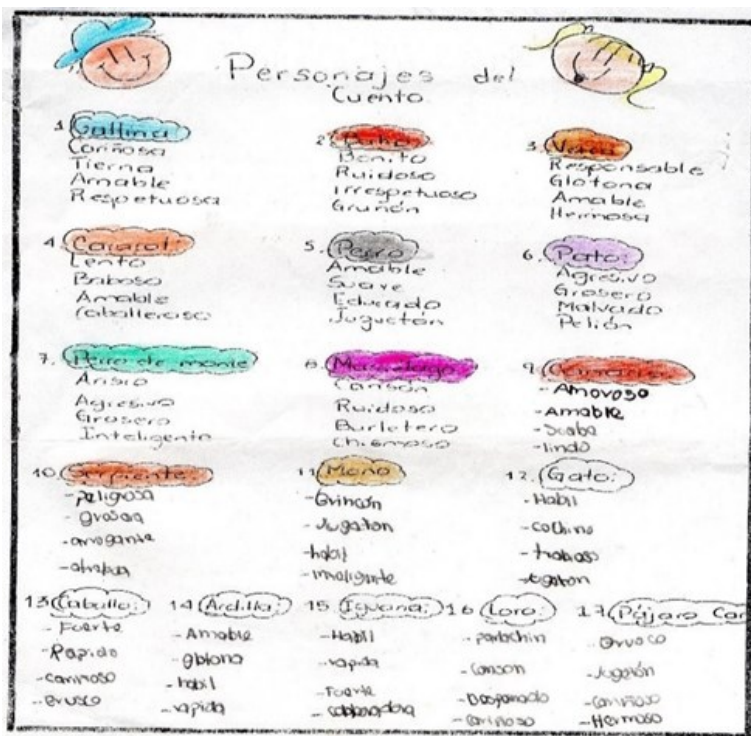 Personajes del
Cuento.
1. Gallina
Cariñosa
Tierna
Amable
Respetuosa
2. Búho
Bonito
Ruidoso
Irrespetuoso
Gruñón
3.
Responsable
Glotona
Amable
Hermosa
4. Caracol
Lento
Baboso
Amable
Caballeroso
5. Perro
Amable
Suave
Educado
Juguetón
6. Pato:
Agresivo
Grosero
Malvado
Pelión
7. Perro de monte
Arisio
Agresivo
Grosero
Inteligente
8. Murcielago
Cansón
Ruidoso
Burletero
Chismoso
9.
- Amoroso
- Amable
-
- lindo
10. Serpiente
- peligrosa
-
- arrogante
-
11. Mono
- Brincón
- Jugeton
- habil
- inteligente
12. Gato:
- Habil
- cochino
-
-
13. Caballo:
- Fuerte
- Rapido
- carinoso
- brusco
14. Ardilla:
- Amable
- glotona
- habil
- rapida
15. Iguana:
- Habil
- rapida
- Fuerte
-
16. Loro:
-
- canson
-
- cariñoso
17. Pájaro Car
- Brusco
- Jugetón
- Cariñoso
- Hermoso